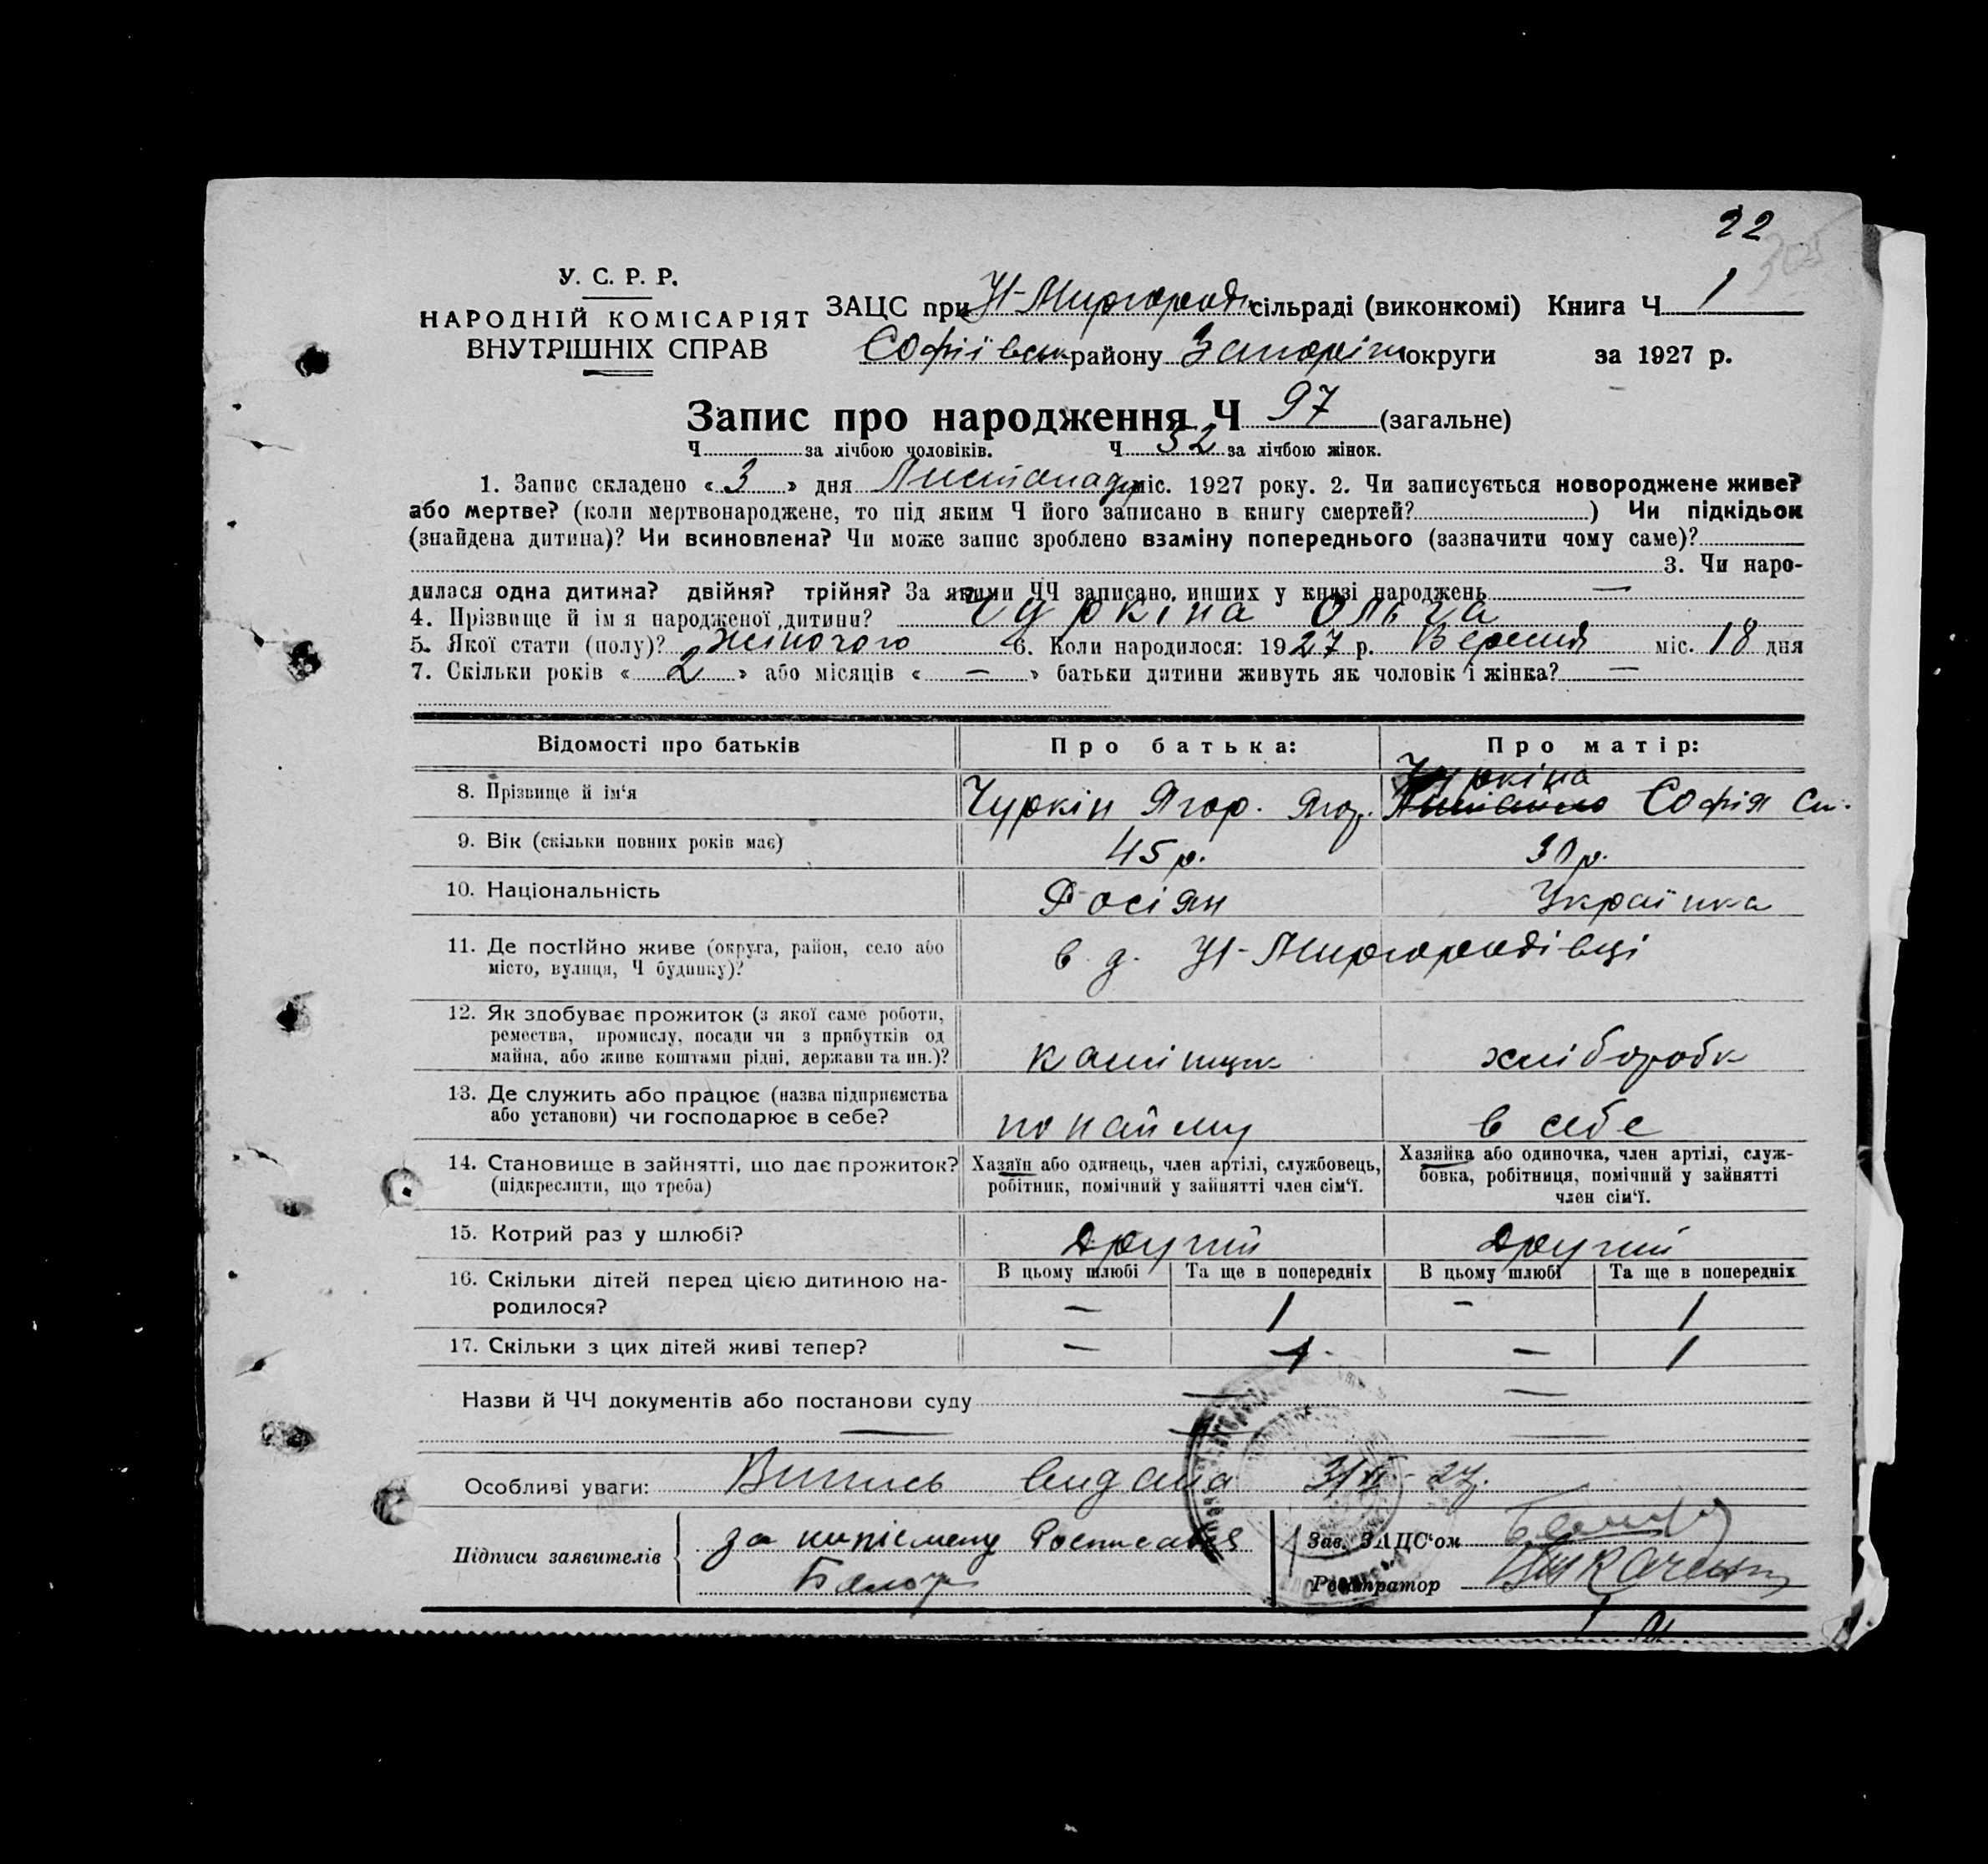 22
У. С. Р. Р.
НАРОДНІЙ КОМІСАРІЯТ
ВНУТРІШНІХ СПРАВ
ЗАЦС при Н-Миргороді сільраді (виконкомі) Книга Ч 1
Софіївськ району Запоріж округи за 1927 р.
Запис про народження Ч 97 (загальне)
Ч за лічбою чоловіків. Ч 52 за лічбою жінок.
1. Запис складено « 3 » дня Листопаду міс. 1927 року. 2. Чи записується новороджене живе?
або мертве? (коли мертвонароджене, то під яким Ч його записано в книгу смертей? ) Чи підкідьок
(знайдена дитина)? Чи всиновлена? Чи може запис зроблено взаміну попереднього (зазначити чому саме)?
3. Чи наро-
дилася одна дитина? двійня? трійня? За якими ЧЧ записано инших у книзі народжень —
4. Прізвище й імя народженої дитини? Чуркіна Ольга
5. Якої стати (полу)? жіночого 6. Коли народилося: 1927 р. Вересня міс. 18 дня
7. Скільки років « 2 » або місяців « — » батьки дитини живуть як чоловік і жінка? —
Відомості про батьків Про батька: Про матір:
Чуркіна
8. Прізвище й ім'я Чуркін Ягор. Ягор. Софія
9. Вік (скільки повних років має) 45 р. 30 р.
10. Національність Росіян Українка
11. Де постійно живе (округа, район, село або
місто, вулиця, Ч будинку)? в д. Н-Миргородівці
12. Як здобуває прожиток (з якої саме роботи,
ремества, промислу, посади чи з прибутків од
майна, або живе коштами рідні, держави та ин.)? камінщик хліборобк
13. Де служить або працює (назва підприємства
або установи) чи господарює в себе? по найму в себе
14. Становище в зайнятті, що дає прожиток?
(підкреслити, що треба)
Хазяїн або одинець, член артілі, службовець,
робітник, помічний у зайнятті член сім'ї.
Хазяйка або одиночка, член артілі, служ-
бовка, робітниця, помічний у зайнятті
член сім'ї.
15. Котрий раз у шлюбі? другий другий
16. Скільки дітей перед цією дитиною на-
родилося?
В цьому шлюбі Та ще в попередніх В цьому шлюбі Та ще в попередніх
— 1 — 1
17. Скільки з цих дітей живі тепер? — 1 — 1
Назви й ЧЧ документів або постанови суду — —
Особливі уваги: Випись видана 3/XI-27.
Підписи заявителів за
Зав. ЗАЦС'ом
Реєстратор